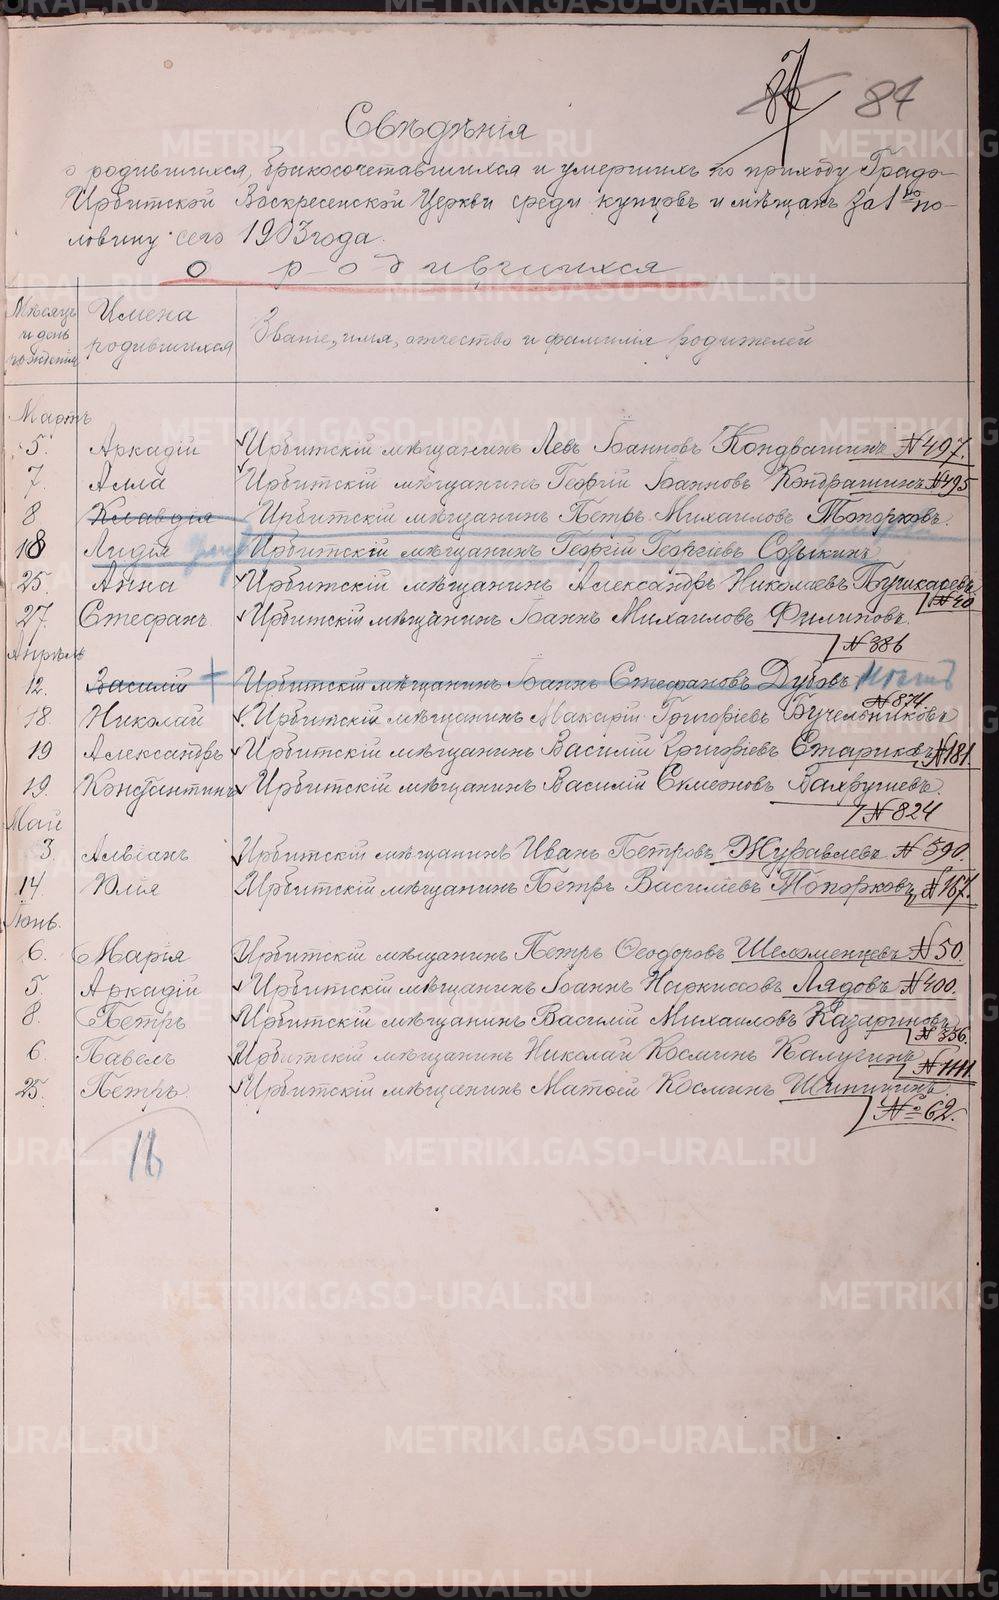 84
Свѣдѣнія
о родившихся, бракосочетавшихся и умершихъ по приходу Градо-
Ирбитской Воскресенской Церкви среди купцовъ и мѣщанъ за 1ую по-
ловину сего 1903 года.
О родившихся
Мѣсяцъ и день рожденія
Имена родившихся
Званіе, имя, отчество и фамилія родителей
Мартъ
5. Аркадій Ирбитскій мѣщанинъ Левъ Іоанновъ Кондрашинъ №497.
7. Алла Ирбитскій мѣщанинъ Георгій Іоанновъ Кондрашинъ №495
8 Клавдія Ирбитскій мѣщанинъ Петръ Михаиловъ Топорковъ.
18 Лидія Ирбитскій мѣщанинъ Георгій Георгіевъ Созыкинъ
25. Анна Ирбитскій мѣщанинъ Александръ Николаевъ
27. Стефанъ Ирбитскій мѣщанинъ Іоаннъ Михаиловъ Филиповъ.
№386
Апрѣль
12. Василій Ирбитскій мѣщанинъ Іоаннъ Стефановъ Дубовъ
№874
18. Николай Ирбитскій мѣщанинъ Макарій Григоріевъ Бучельниковъ
19 Александръ Ирбитскій мѣщанинъ Василій Григоріевъ Стариковъ №181.
19. Константинъ Ирбитскій мѣщанинъ Василій Симеоновъ Вахрушевъ.
№824
Май
3. Алвіанъ Ирбитскій мѣщанинъ Иванъ Петровъ Журавлевъ №590.
14 Юлія Ирбитскій мѣщанинъ Петръ Василіевъ Топорковъ, №167.
Іюнь.
6. Марія Ирбитскій мѣщанинъ Петръ Ѳеодоровъ Шеломенцевъ №50.
5. Аркадій Ирбитскій мѣщанинъ Іоаннъ Наркиссовъ Лядовъ №400.
8. Петръ Ирбитскій мѣщанинъ Василій Михаиловъ Казариновъ
№336.
6. Павелъ Ирбитскій мѣщанинъ Николай Косминъ Калугинъ
№1111.
25. Петръ Ирбитскій мѣщанинъ Матѳей Косминъ Шипицинъ.
№62.
16
METRIKI.GASO-URAL.RU